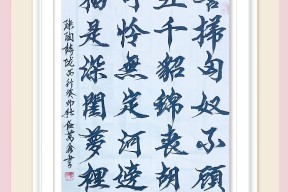 誓掃匈奴不顧
五千貂錦喪胡
可憐無定河邊
猶是深閨夢裡
陳陶隴西行癸卯秋